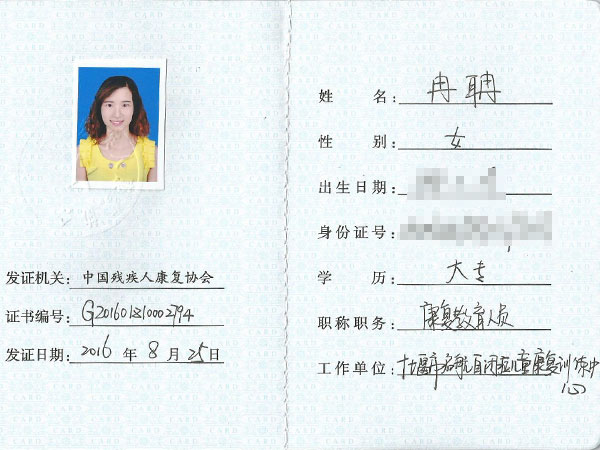 发证机关：中国残疾人康复协会
证书编号：G20160181000294
发证日期：2016 年 8 月 25 日
姓 名：冉聃
性 别：女
出生日期：
身份证号：
学 历：大专
职称职务：康复教育人员
工作单位：十堰市启航自闭症儿童康复训练中
心